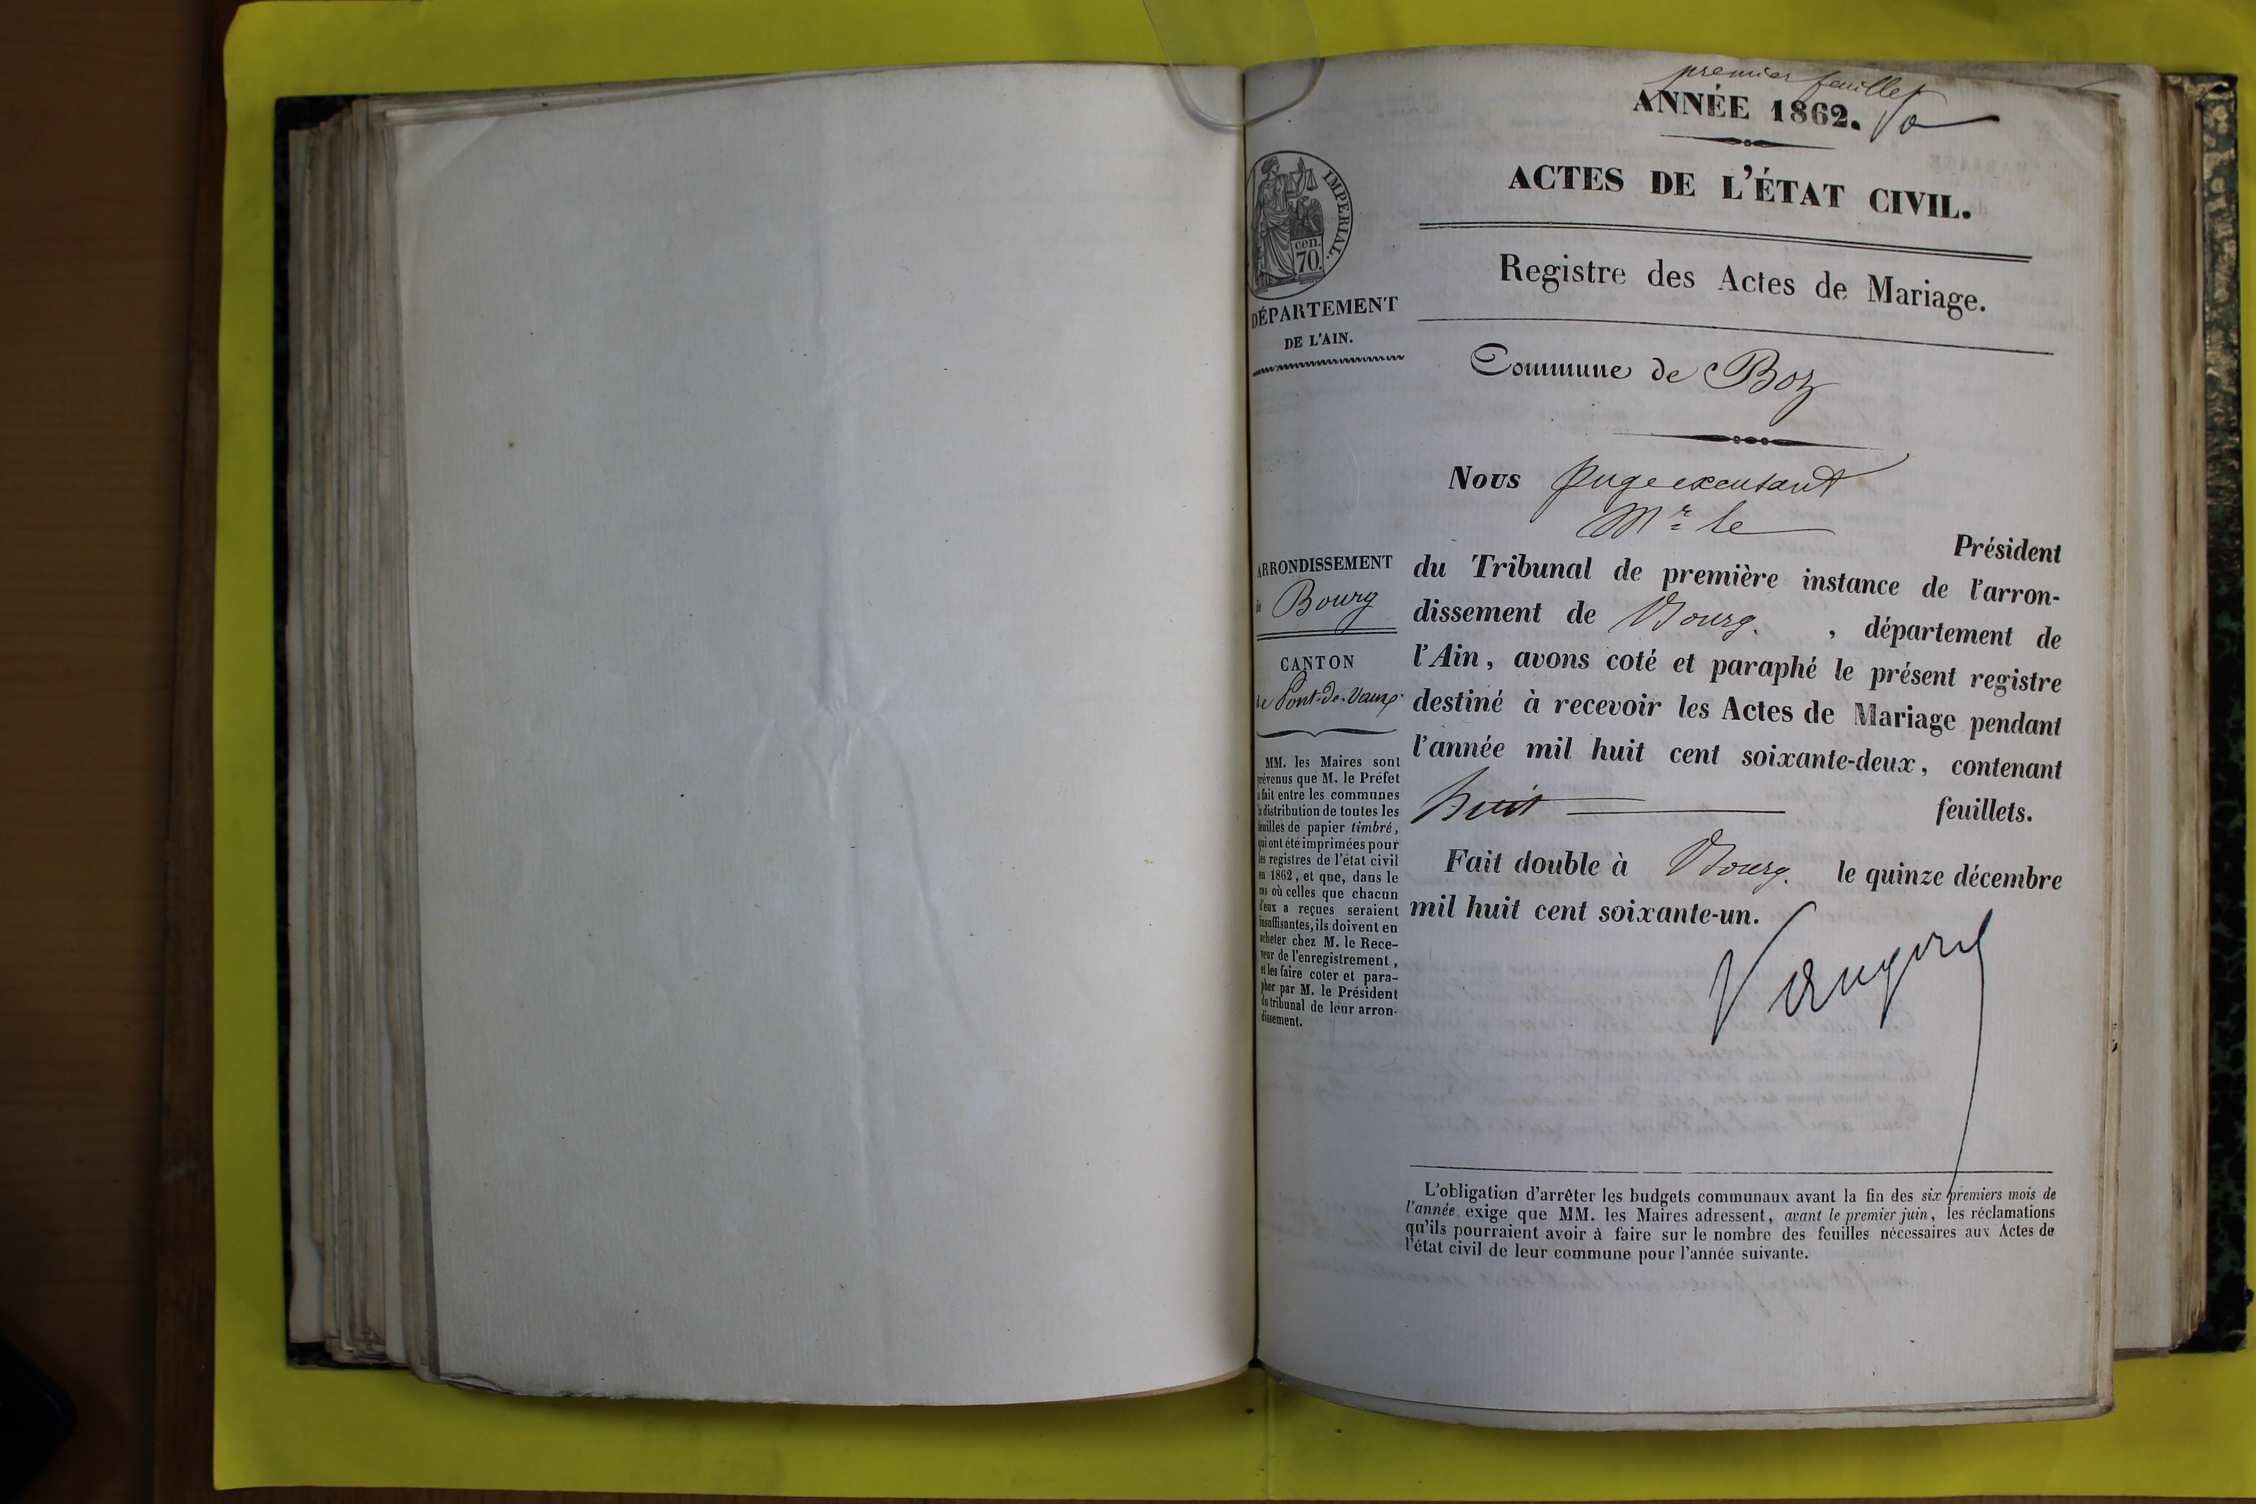 premier feuillet
ANNÉE 1862.
ACTES DE L'ÉTAT CIVIL.
Registre des Actes de Mariage.
Commune de Boz
IMPERIAL.
cen.
70.
DÉPARTEMENT
DE L'AIN.
ARRONDISSEMENT
de Bourg
CANTON
de Pont-de-Vaux.
MM. les Maires sont
prévenus que M. le Préfet
a fait entre les communes
la distribution de toutes les
feuilles de papier timbré,
qui ont été imprimées pour
les registres de l'état civil
en 1862, et que, dans le
cas où celles que chacun
d'eux a reçues seraient
insuffisantes, ils doivent en
acheter chez M. le Rece-
veur de l'enregistrement,
et les faire coter et para-
pher par M. le Président
du tribunal de leur arron-
dissement.
Nous Juge excusant
Mr le
Président
du Tribunal de première instance de l'arron-
dissement de Bourg. , département de
l'Ain, avons coté et paraphé le présent registre
destiné à recevoir les Actes de Mariage pendant
l'année mil huit cent soixante-deux, contenant
huit feuillets.
Fait double à Bourg. le quinze décembre
mil huit cent soixante-un.
L'obligation d'arrêter les budgets communaux avant la fin des six premiers mois de
l'année exige que MM. les Maires adressent, avant le premier juin, les réclamations
qu'ils pourraient avoir à faire sur le nombre des feuilles nécessaires aux Actes de
l'état civil de leur commune pour l'année suivante.